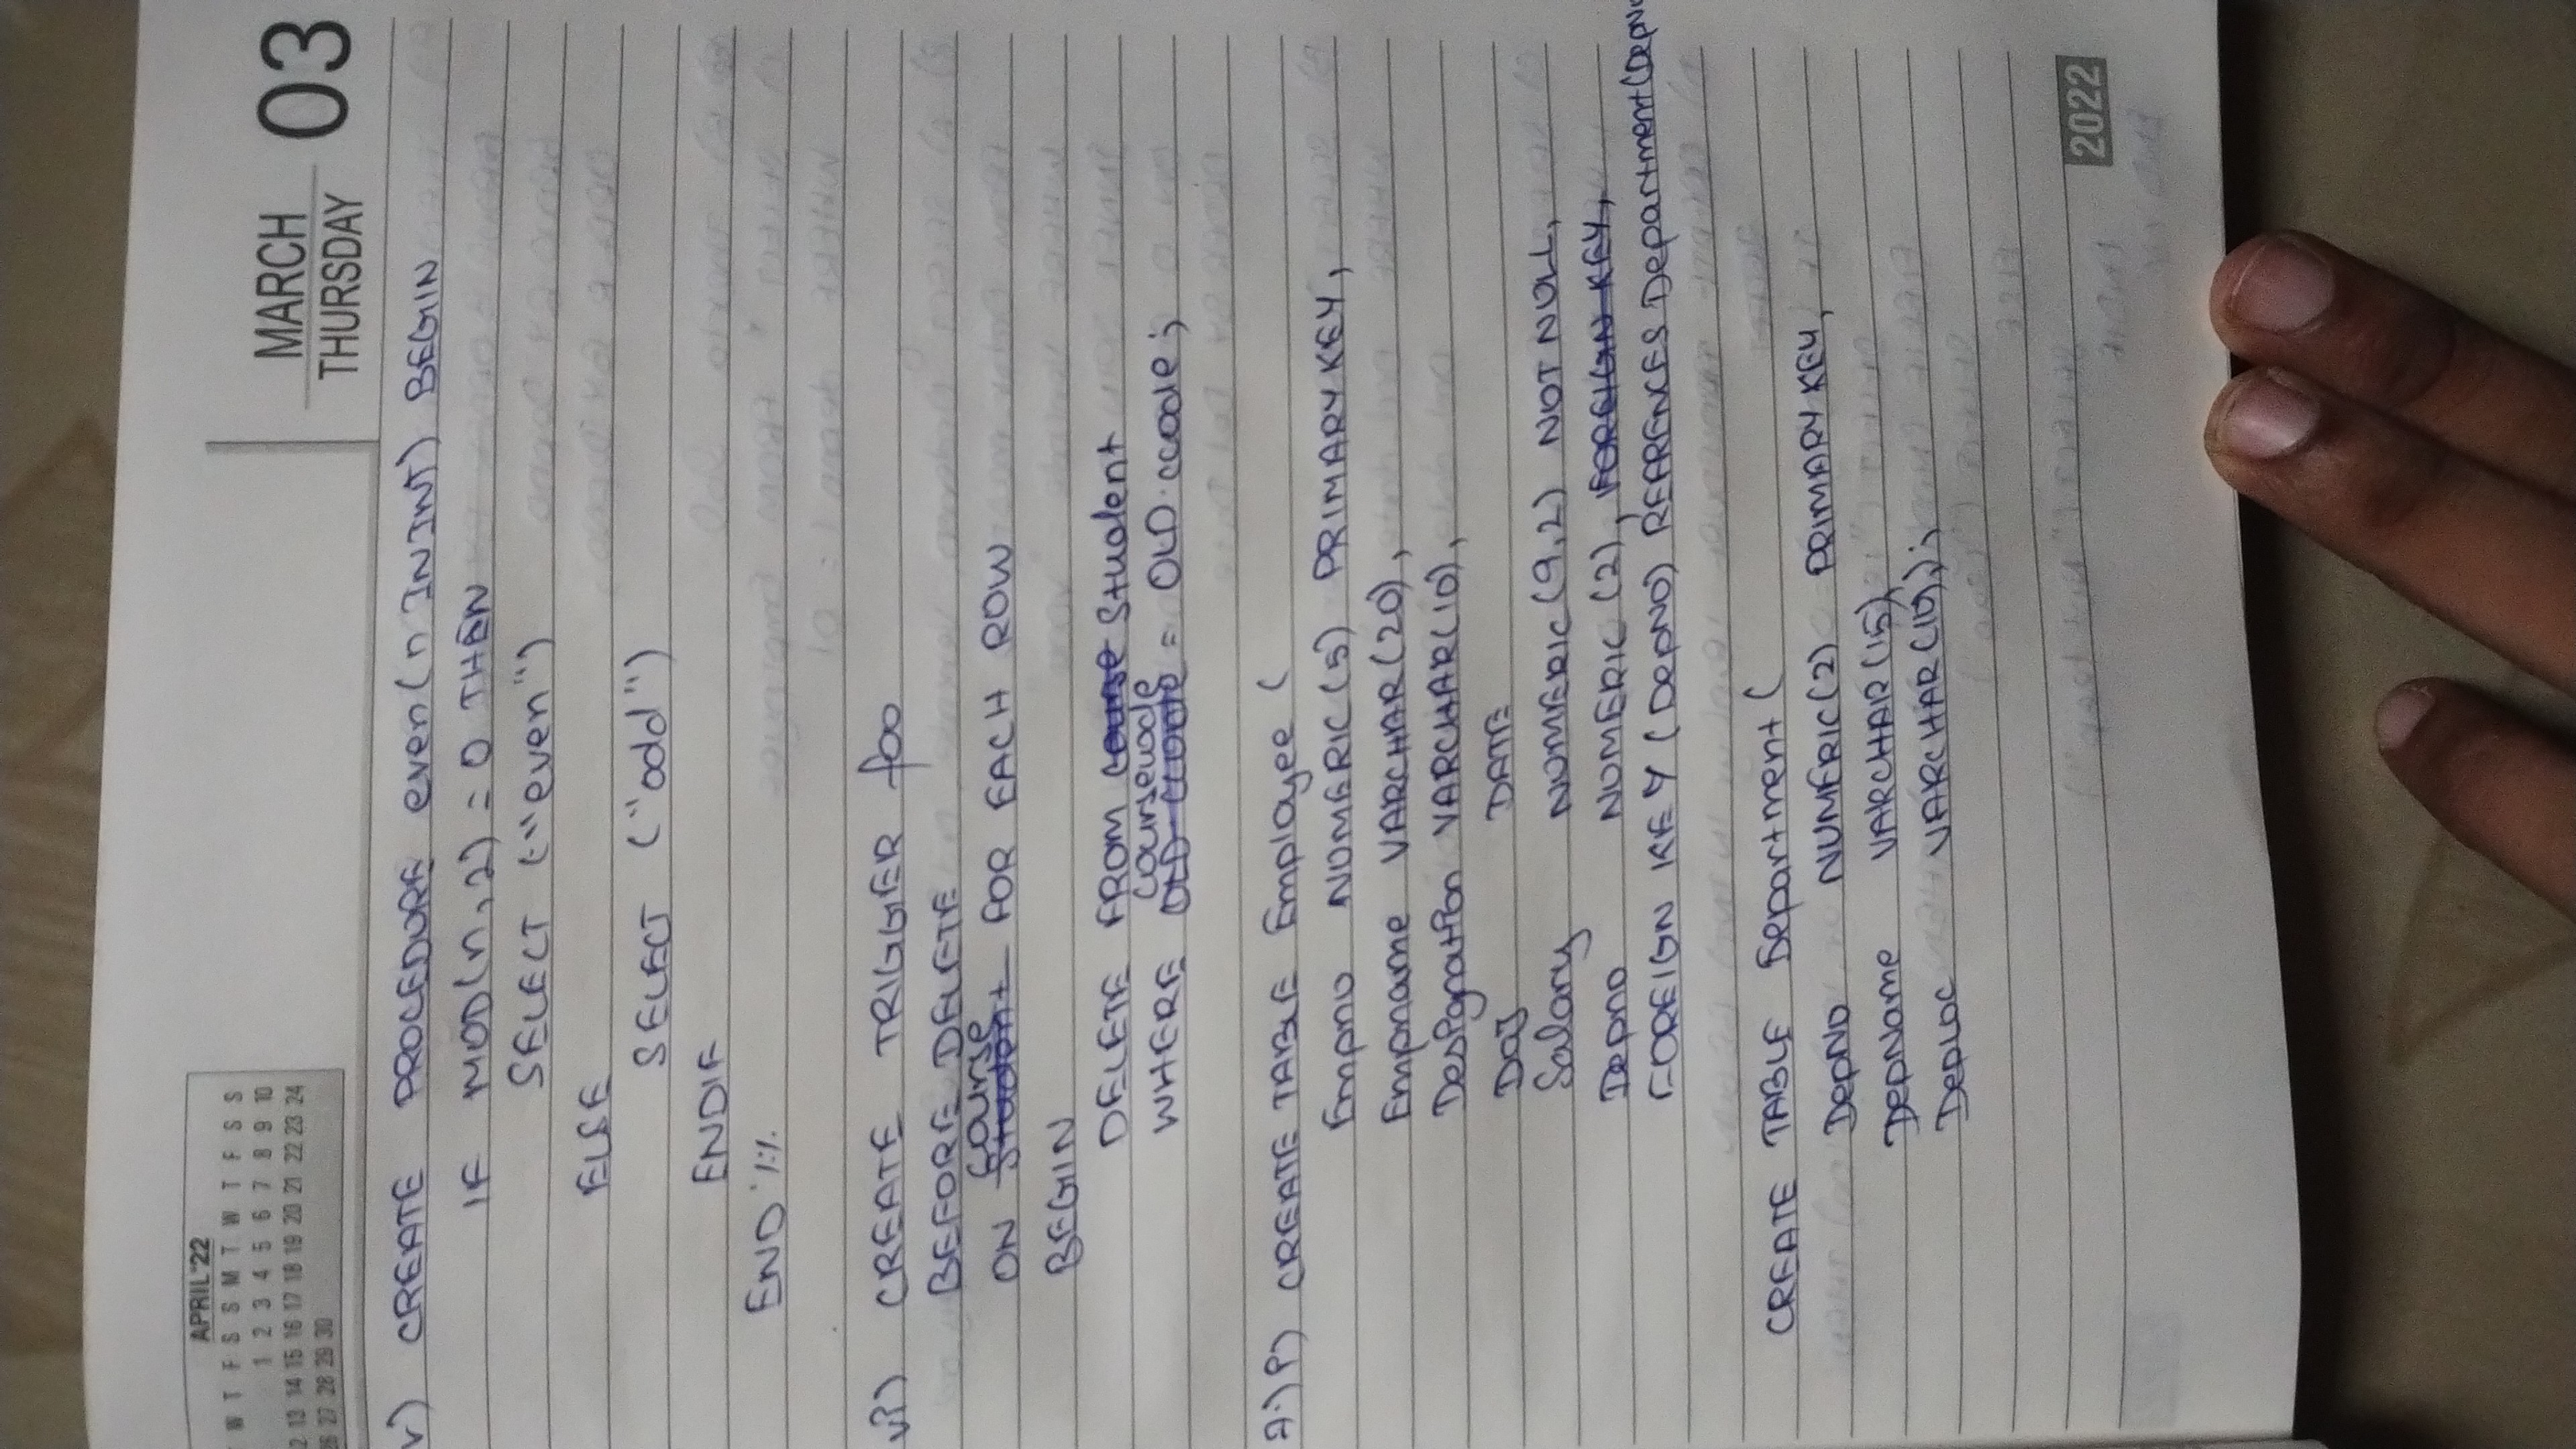 APRIL'22
W T F S S M T W T F S S
1 2 3 4 5 6 7 8 9 10
2 13 14 15 16 17 18 19 20 21 22 23 24
26 27 28 29 30
MARCH 03
THURSDAY
v) CREATE PROCEDURE even(n IN INT) BEGIN
IF MOD(n,2) = 0 THEN
SELECT ("even")
ELSE
SELECT ("odd")
ENDIF
END
vi) CREATE TRIGGER foo
BEFORE DELETE
ON Student course FOR EACH ROW
BEGIN
DELETE FROM course Student
WHERE OLD.ccode coursecode = OLD.ccode;
7.) i) CREATE TABLE Employee (
Empno NUMERIC(5) PRIMARY KEY,
Empname VARCHAR(20),
Designation VARCHAR(10),
DOJ DATE
Salary NUMERIC(9,2) NOT NULL,
Depno NUMERIC(2), FOREIGN KEY,
FOREIGN KEY (DepNO) REFRENCES Department(DepNo
CREATE TABLE Department (
DepNo NUMERIC(2) PRIMARY KEY,
DepName VARCHAR(15),
DepLoc VARCHAR(10));
2022